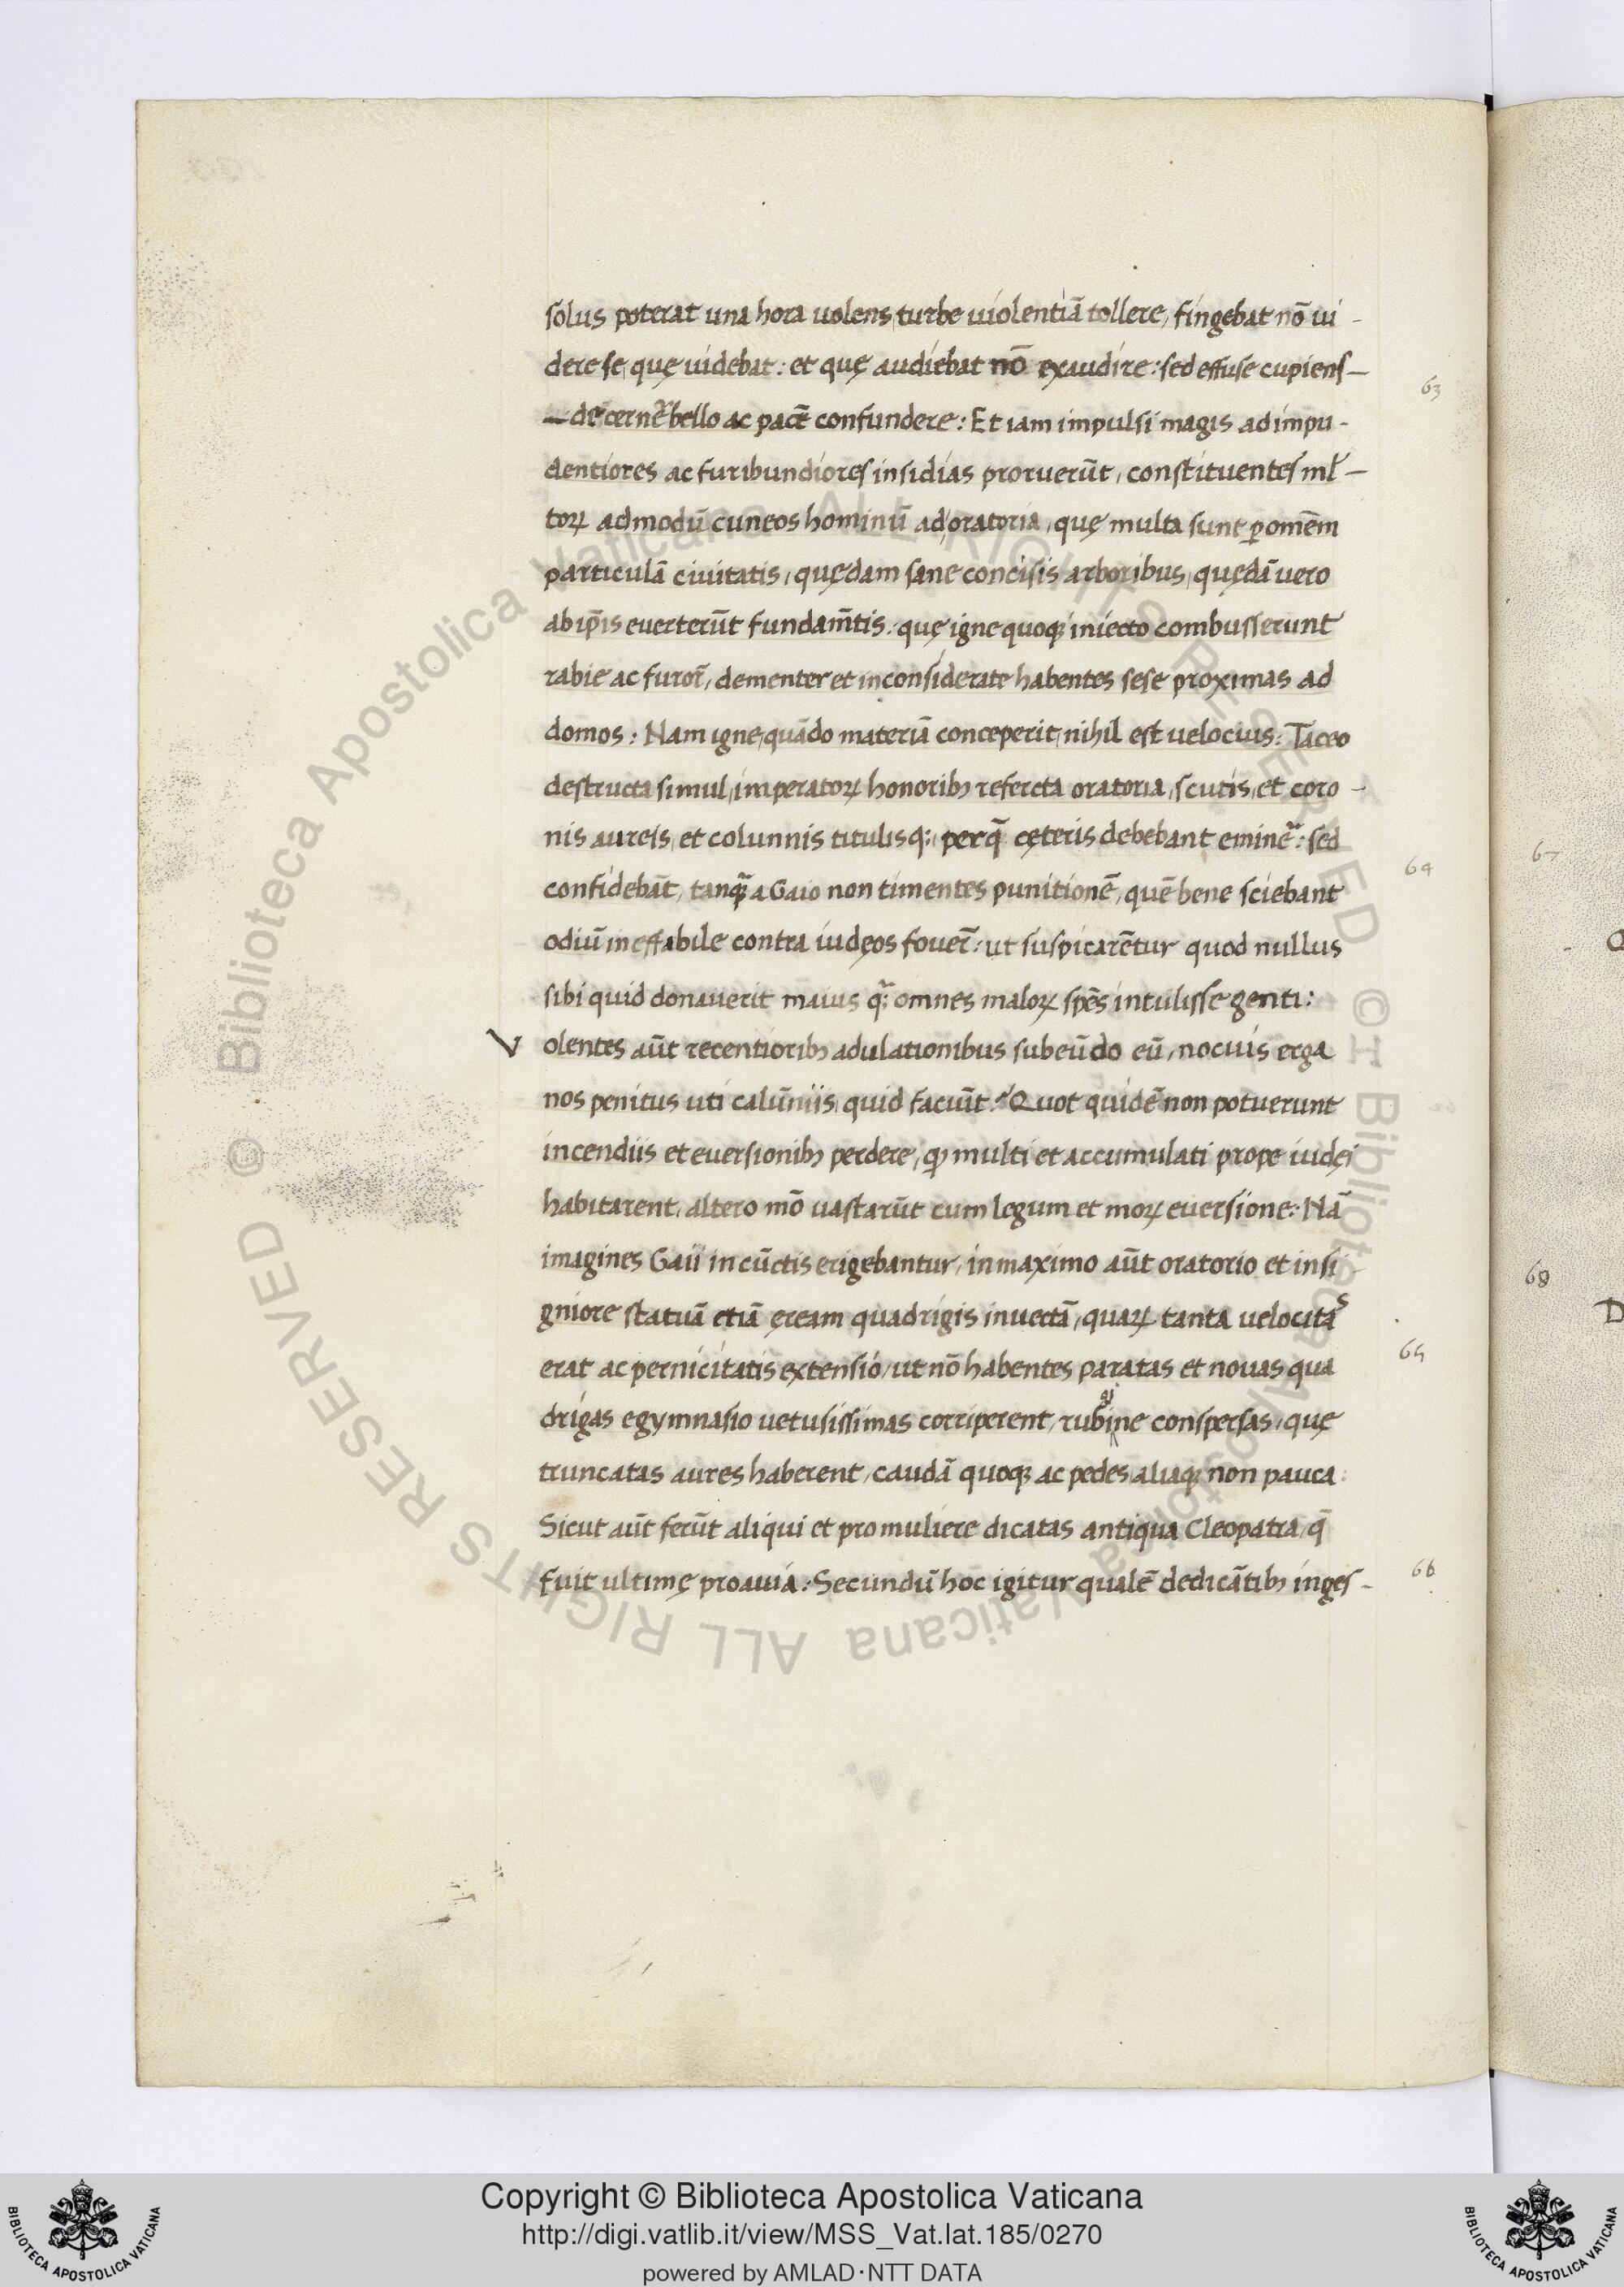 solus poterat una hora uolens, turbe uiolentiā tollere, fingebat nō ui-
dere se, quę uidebat: et quę audiebat nō exaudire: sed effuse cupiens-
-decernē bello ac pacē confundere: Et iam impulsi magis ad impu-
dentiores ac furibundiores insidias proruerūt, constituentes ml̄-
toꝝ admodū cuneos hominū ad oratoria, quę multa sunt ꝑ omēm
particulā ciuitatis, quędam sane concisis arboribus, quędā uero
ab ip̄is euerterūt fundam̄tis: quę igne quoqꝫ iniecto combusserunt
rabie ac furor̄, dementer et inconsiderate habentes sese proximas ad
domos: Nam igne, quādo materiā conceperit, nihil est uelocius: Taceo
destructa simul, imperatoꝝ honoribꝫ refercta oratoria, scutis, et coro-
nis aureis, et colunnis titulisqꝫ, per q̄ cęteris debebant eminē: sed
confidebāt, tanq̄ a Gaio non timentes punitionē, quē bene sciebant
odiū ineffabile contra iudęos fouer̄: ut suspicarētur quod nullus
sibi quid donauerit maius q̄ꝫ omnes maloꝝ spēs intulisse genti:
Volentes aūt recentioribꝫ adulationibus subeūdo eū, nocuis erga
nos penitus uti calūniis, quid faciūt? Quot quidē non potuerunt
incendiis et euersionibꝫ perdere, qꝫ multi et accumulati prope iudęi
habitarent, altero mō uastarūt cum legum et moꝝ euersione: Nā
imagines Gaii in cūctis erigebantur, in maximo aūt oratorio et insi
gniore statuā etiā ęream quadrigis inuectā, quaꝝ tanta uelocitas
erat ac pernicitatis extensio, ut nō habentes paratas et nouas qua
drigas e gymnasio uetusissimas corriperent, rubigine conspersas, quę
truncatas aures haberent, caudā quoqꝫ ac pedes, aliaqꝫ non pauca:
Sicut aūt ferūt aliqui et pro muliere dicatas antiqua Cleopatra, q̄
fuit ultimę proauia: Secundū hoc igitur qualē dedicātibꝫ inges-
63
64
65
66
67
68
D
© Biblioteca Apostolica Vaticana ALL RIGHTS RESERVED
Copyright © Biblioteca Apostolica Vaticana
http://digi.vatlib.it/view/MSS_Vat.lat.185/0270
powered by AMLAD·NTT DATA
BIBLIOTECA APOSTOLICA VATICANA
BIBLIOTECA APOSTOLICA VATICANA